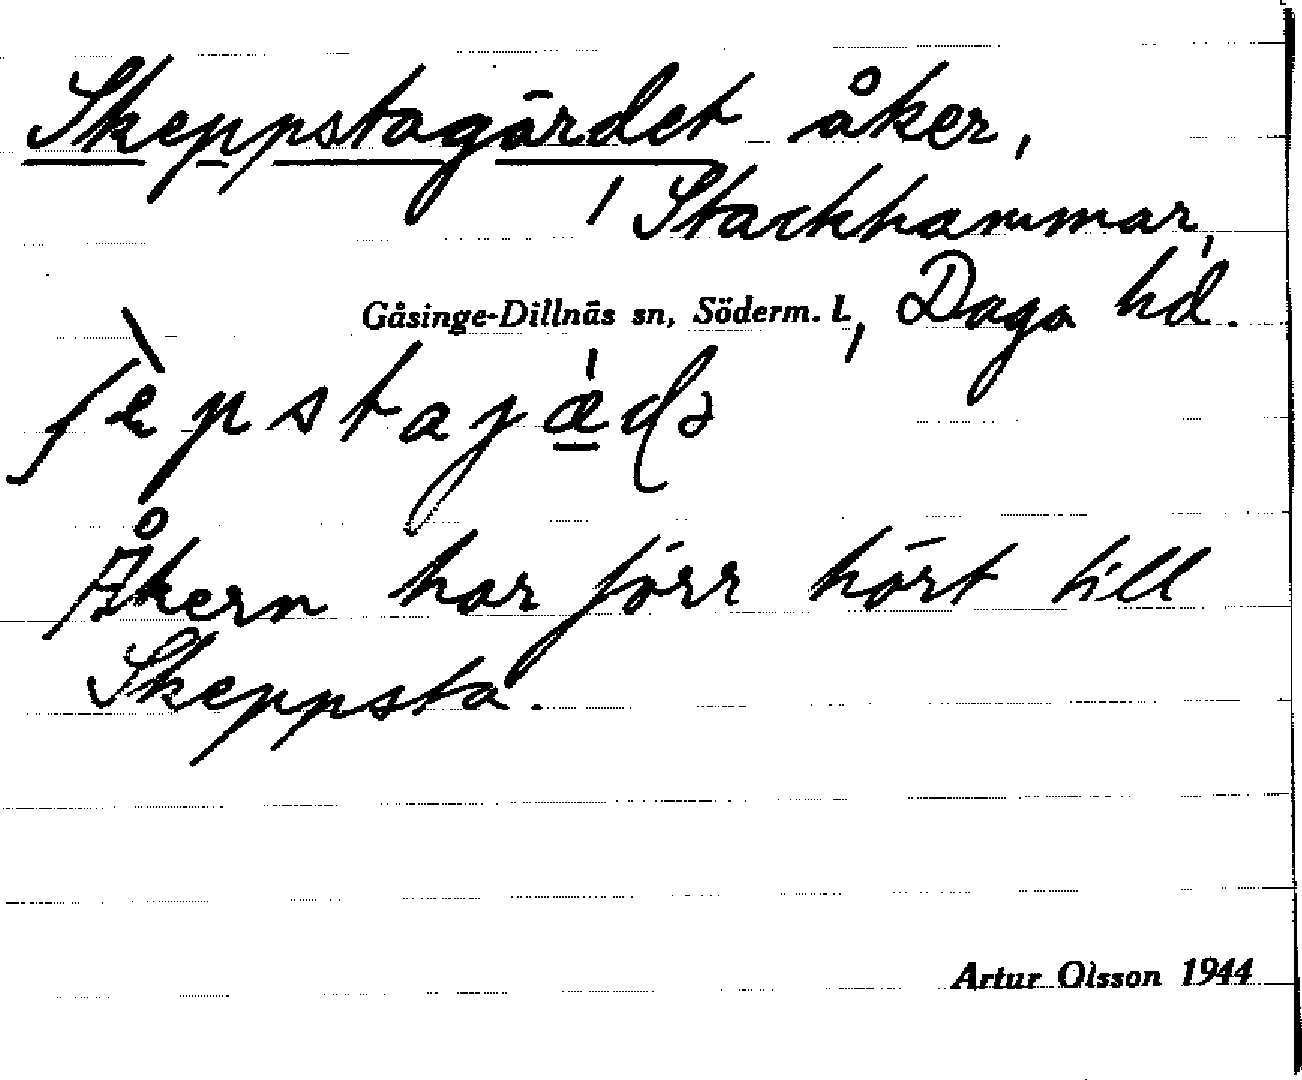 Skeppstagärdet åker,
i Stackhammar,
Gåsinge-Dillnäs sn, Söderm. l., Daga hd.
Åkern har förr hört till
Skeppsta.
Artur Olsson 1944